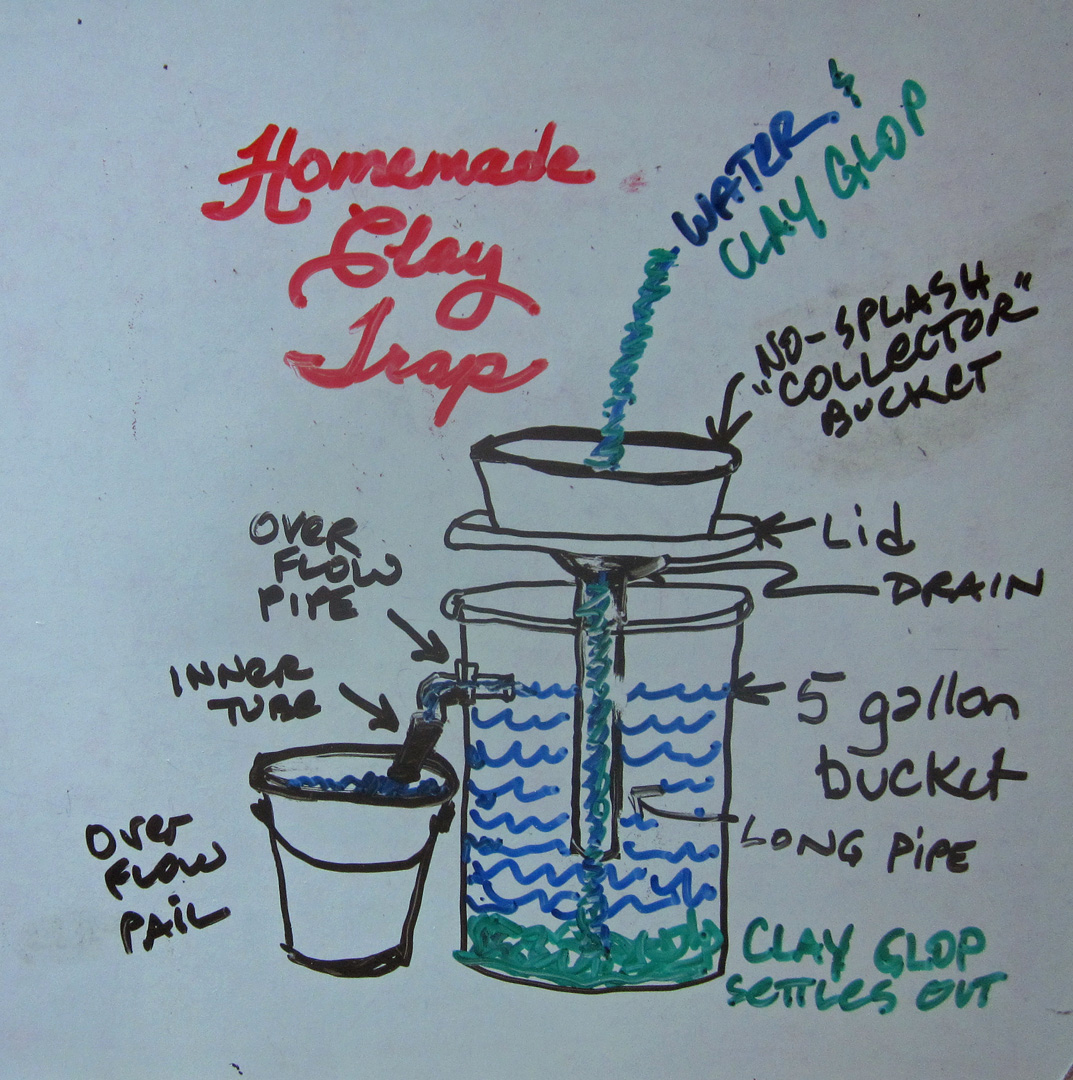 Homemade
Clay
Trap
WATER &
CLAY GLOP
NO-SPLASH
"COLLECTOR"
BUCKET
Lid
DRAIN
OVER
FLOW
PIPE
INNER
TUBE
5 gallon
bucket
LONG PIPE
OVER
FLOW
PAIL
CLAY GLOP
SETTLES OUT